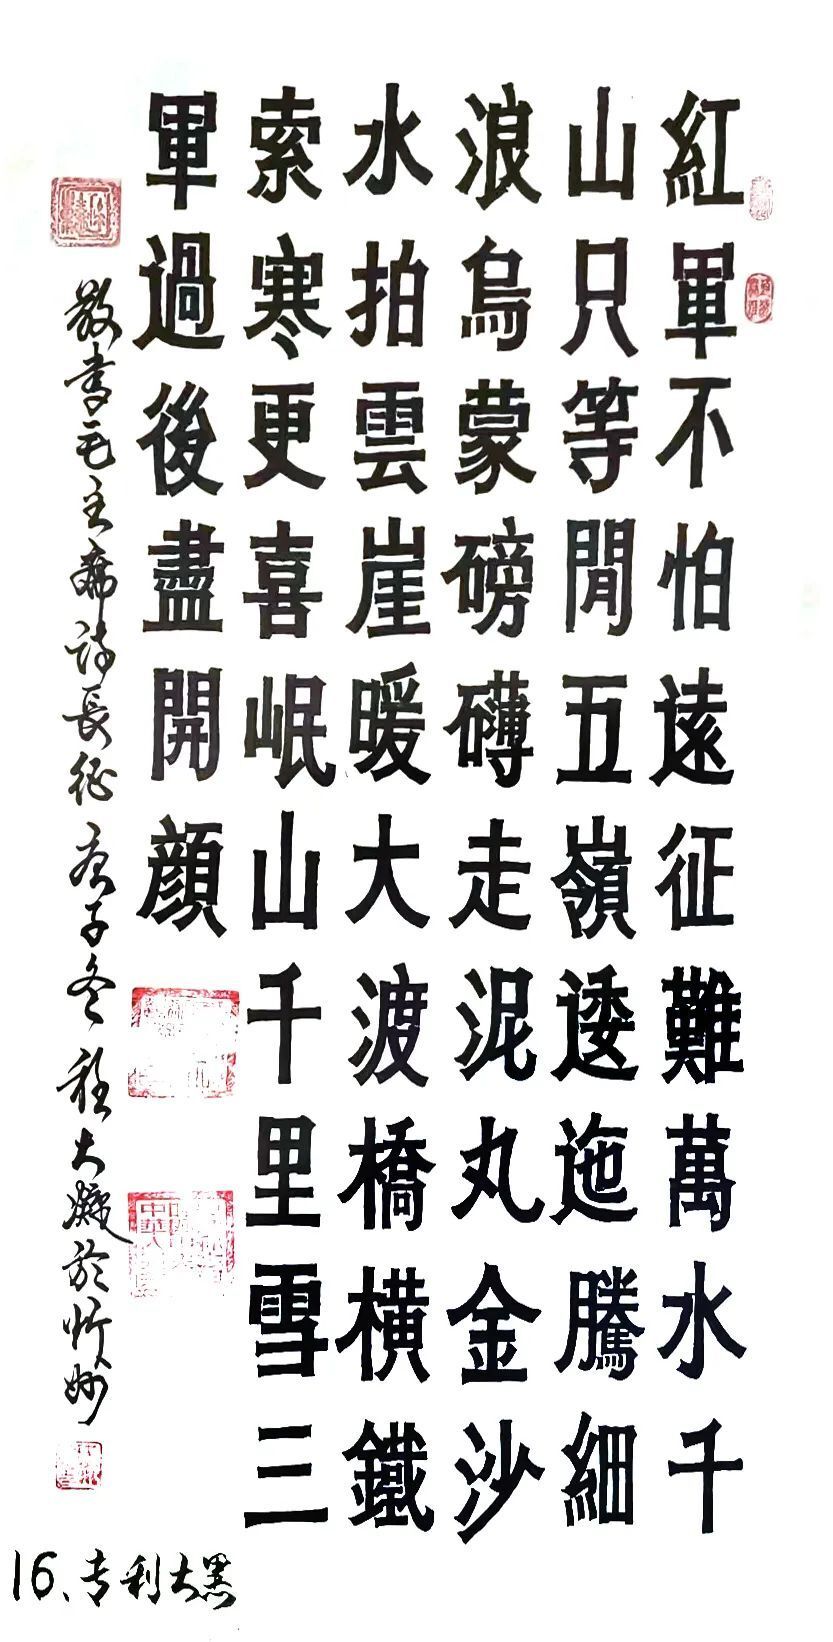 紅軍不怕遠征難萬水千
山只等閒五嶺逶迤騰細
浪烏蒙磅礴走泥丸金沙
水拍雲崖暖大渡橋横鐵
索寒更喜岷山千里雪三
軍過後盡開顔
敬書毛主席詩長征 庚子冬 程大於
16、专利大黑